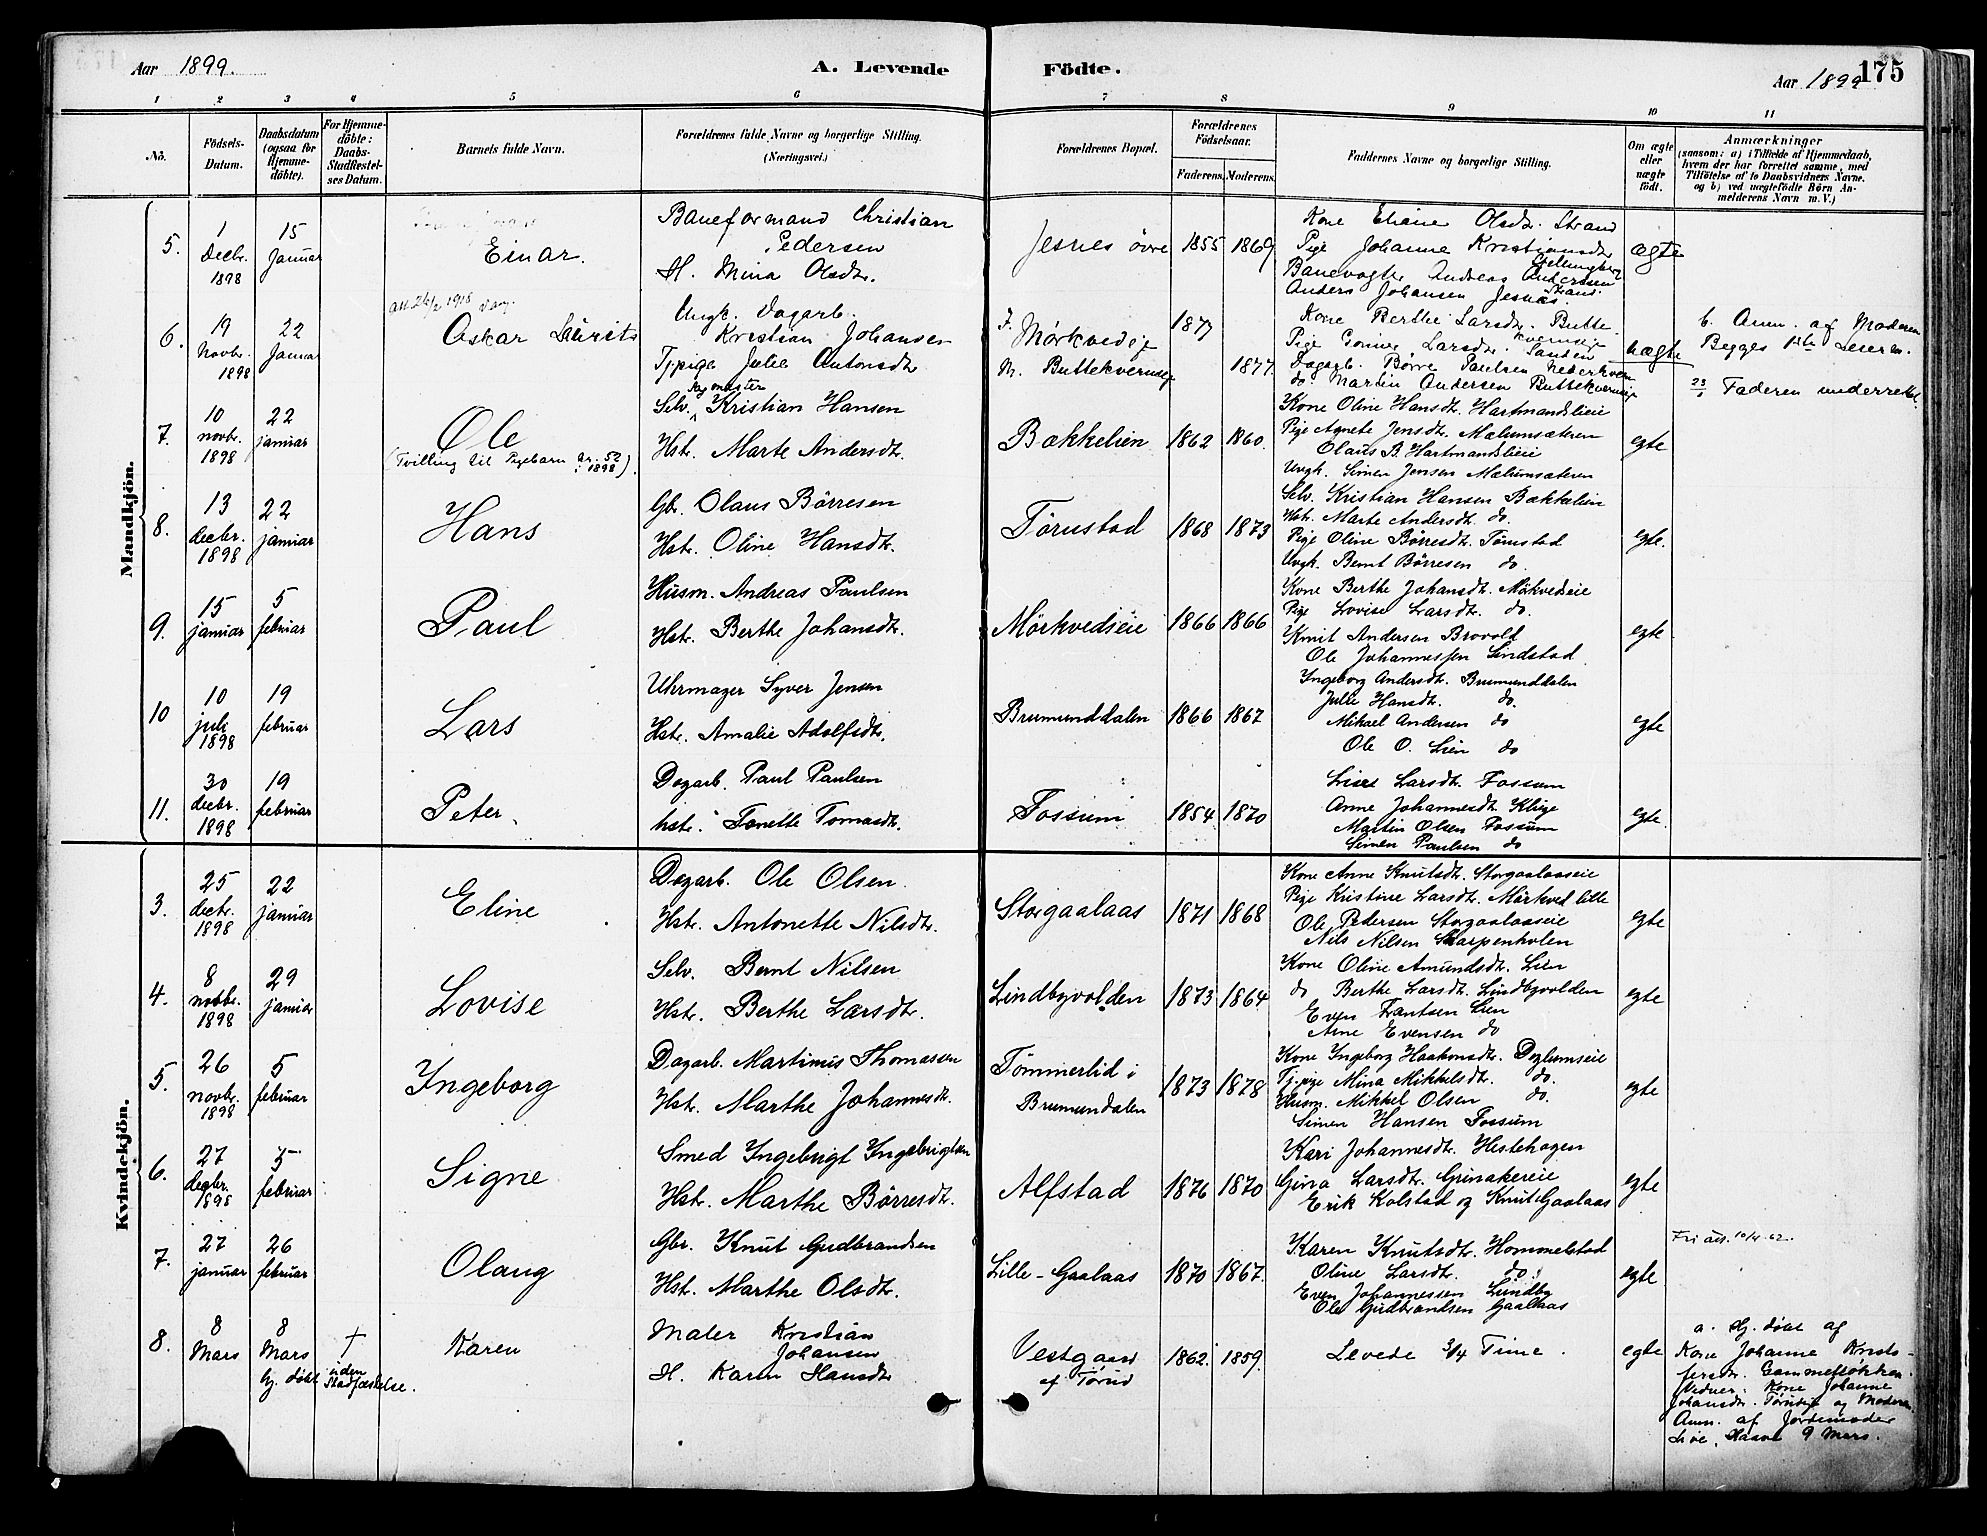 Aar 1899.
A. Levende Födte.
Aar 1899
175
1 2 3 4 5 6 7 8 9 10 11
No.
Födsels-Datum.
Daabsdatum (ogsaa for Hjemme-döbte).
For Hjemme-döbte: Daabs-Stadfæstel-ses Datum.
Barnets fulde Navn.
Forældrenes fulde Navne og borgerlige Stilling. (Næringsvei.)
Forældrenes Bopæl.
Forældrenes Födselsaar.
Faderens. Moderens.
Faddernes Navne og borgerlige Stilling.
Om ægte eller uægte födt.
Anmærkninger
(saasom: a) i Tilfælde af Hjemmedaab, hvem der har forrettet samme, med Tilföielse af to Daabsvidners Navne. og b) ved uægtefödte Börn Anmelderens Navn m. V.)
Mandkjön.
5.
1 Decbr. 1898
15 Januar
Einar.
Baneformand Christian Pedersen
H. Mina Olsdtr.
Jesnes övre
1855 1869
Kone Eliane Olsdtr. Strand
Pige Johanne Kristiansdtr
Banevogter Andreas Andersen
Anders Johansen Jesnes
ægte
6.
19 Novbr. 1898
22 Januar
att 26/2 1918
Oskar Laurits
Ungk. Dagarb. Kristian Johansen
Tjpige Julie Antonsdtr
F. Mörkvedeje
M. Buttekverneje
1877
1877.
Kone Berthe Larsdtr. Butte
kverneje
Pige Gonner Larsdtr. Sanden
Dagarb. Börre Paulsen Nederkvern
do. Martin Andersen Buttekverneje
uægte
b. Anm. af Moderen
Begges 1ste Leierm.
23/1 Faderen underrettet.
7.
10 novbr. 1898
22 januar
Ole
(Tvilling til Pigebarn nr. 52 i 1898).
Selv. Kristian Hansen
Hst. Marte Andersdtr.
Bækkelien
1862 1860.
Kone Oline Hansdtr. Hartmandslieie
Pige Agnete Jensdtr. Mælumsæteren
Olaus B. Hartmandslieie
Ungk. Simen Jensen Mælumsæteren
egte
8.
13 decbr. 1898
22 januar
Hans
Gbr. Olaus Börresen
Hstr. Oline Hansdtr.
Törustad
1868 1873
Selv. Kristian Hansen Bækkelien
Hst. Marte Andersdtr. do.
Pige Oline Börresdtr. Törustad
Ungk. Bernt Börresen do
egte.
9.
15 januar
5 februar
Paul
Husm. Andreas Paulsen
Hst. Berthe Johansdtr.
Mörkvedseie
1866 1866
Kone Berthe Johansdtr. Mörkvedseie
Pige Lovise Larsdtr. do.
Knut Andersen Brovold
Ole Johannessen Lindstad
egte
10
10 juli 1898
19 februar
Lars
Uhrmager Syver Jensen
Hst. Amalie Adolfsdtr.
Brumunddalen
1866 1867
Ingeborg Andersdtr. Brumunddalen
Julie Hansdtr. do.
Mikael Andersen do
Ole O. Lien do
egte
11.
30 decbr. 1898
19 februar
Peter.
Dagarb. Paul Paulsen
hst. Tonette Tomasdtr.
Fossum
1854 1870
Lise Larsdtr. Fossum
Anne Johannesdtr.
Martin Olsen Fossum
Simen Paulsen do
egte.
Kvindekjön.
3.
25 decbr. 1898
22 januar
Eline
Dagarb. Ole Olsen.
Hst. Antonette Nilsdtr.
Storgaalaas
1871 1868
Kone Anne Knutsdtr. Storgaalaaseie
Pige Kristine Larsdtr. Mörkved lille
Ole Pedersen Storgaalaaseie
Nils Nilsen Skarpenholen
egte
4.
8 novbr. 1898
29 januar
Lovise
Selv. Bernt Nilsen
Hst. Berthe Larsdtr.
Lindbyvolden
1873 1864
Kone Oline Amundsdtr. Lien
do Berthe Larsdtr. Lindbyvolden
Even Lien
Arne Evensen do
egte
5.
26 novbr. 1898
5 februar
Ingeborg
Dagarb. Martinus Thomassen
Hst. Marthe Johannesdtr.
Tömmerlid i Brumundalen
1873 1878
Kone Ingeborg Haakonsdtr. Doglumseie
Tj.pige Mina Mikkelsdtr. do.
Husm. Mikkel Olsen do.
Simen Hansen Fossum
egte
6.
27 decbr. 1898
5 februar
Signe
Smed Ingebrigt Ingebrigtsen
Hst. Marthe Börresdtr.
Alfstad
1876 1870
Kari Johannesdtr. Hestehagen
Gina Larsdtr. Grinakereie
Erik Kolstad og Knut Gaalaas
egte
7.
27 januar
26 februar
Olaug
Gbr. Knut Gudbrandsen
Hst. Marthe Olsdtr.
Lille-Gaalaas
1870 1867.
Karen Knutsdtr. Hommelstad
Oline Larsdtr. do
Even Johannessen Lundby
Ole Gudbrandsen Gaalaas
egte
Fri att. 10/4.62.
8.
8 Mars
8 Mars Hj. döbt
† uden Stadfæstelse.
Karen
Maler Kristian Johansen
H. Karen Hansdtr
Vestgaard af Törud
1862. 1859.
Levede 3/4 Time.
egte
a. Hj. döbt af
Kone Johanne Kristo-
fersdtr.
Vidner: Kone Johanne
Johansdtr. og Moderen
Anm. af Jordemoder
9 Mars.